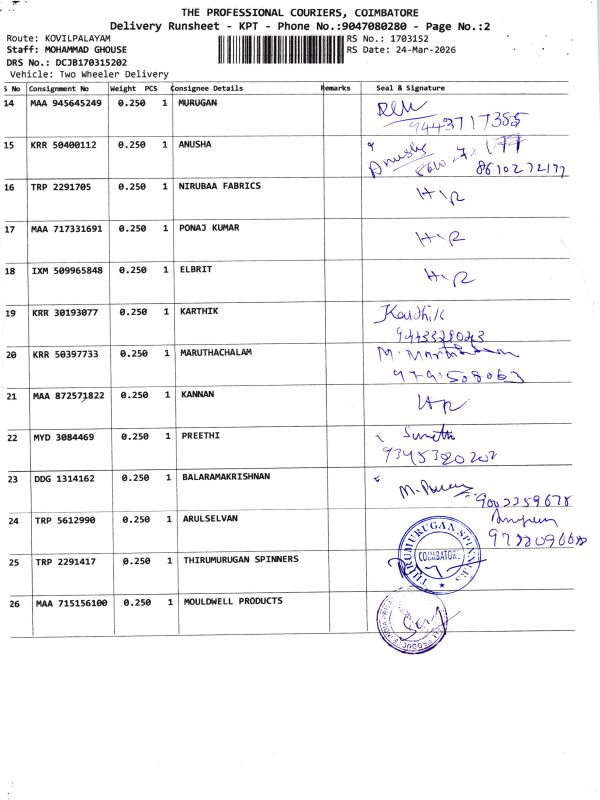 THE PROFESSIONAL COURIERS, COIMBATORE
Delivery Runsheet - KPT - Phone No.:9047080280 - Page No.:2
Route: KOVILPALAYAM RS No.: 1703152
Staff: MOHAMMAD GHOUSE RS Date: 24-Mar-2026
DRS No.: DCJB170315202
Vehicle: Two Wheeler Delivery
S No Consignment No Weight PCS Consignee Details Remarks Seal & Signature
14 MAA 945645249 0.250 1 MURUGAN
9443717355
15 KRR 50400112 0.250 1 ANUSHA
Anusha
8610272177
16 TRP 2291705 0.250 1 NIRUBAA FABRICS
17 MAA 717331691 0.250 1 PONAJ KUMAR
18 IXM 509965848 0.250 1 ELBRIT
19 KRR 30193077 0.250 1 KARTHIK Karthik
20 KRR 50397733 0.250 1 MARUTHACHALAM
9791508063
21 MAA 872571822 0.250 1 KANNAN
22 MYD 3084469 0.250 1 PREETHI
23 DDG 1314162 0.250 1 BALARAMAKRISHNAN
24 TRP 5612990 0.250 1 ARULSELVAN
25 TRP 2291417 0.250 1 THIRUMURUGAN SPINNERS THIRUMURUGAN SPINNERS COIMBATORE
26 MAA 715156100 0.250 1 MOULDWELL PRODUCTS